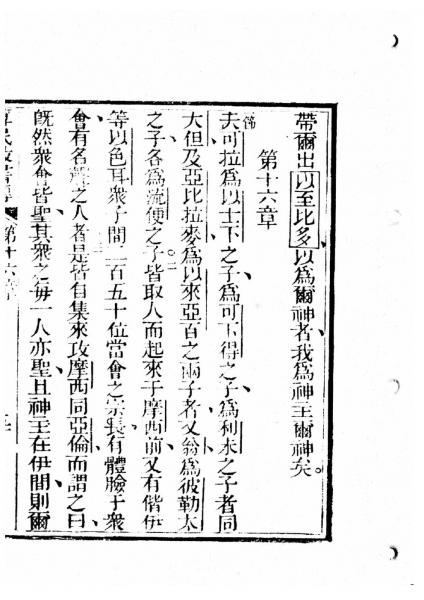 帶爾出以至比多以為爾神者我為神主爾神矣。
第十六章
夫可拉為以士下之子為可下得之子為利未之子者同
大但及亞比拉麥為以來亞百之兩子者又翁為彼勒大
之子各為流便之子皆取人而起來于摩西前又有偕伊
等以色耳眾子間二百五十位當會之宗長有體臉于眾
會有名聲之人者是皆自集來攻摩西同亞倫而謂之曰
既然眾會皆聖其眾之每一人亦聖且神主在伊間則爾
第十六章